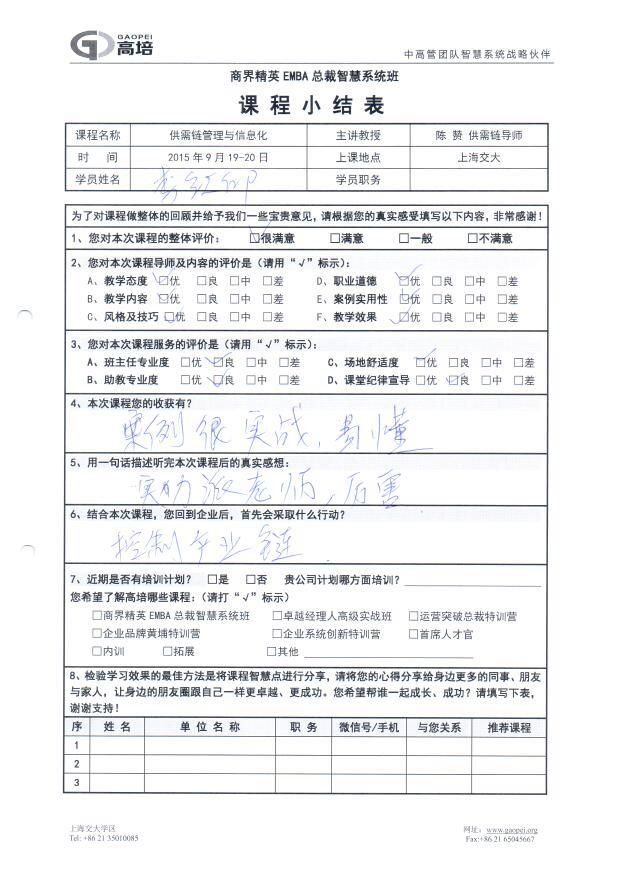 GAOPEI
高培
中高管团队智慧系统战略伙伴
商界精英 EMBA 总裁智慧系统班
课程小结表
课程名称 供需链管理与信息化 主讲教授 陈 赞 供需链导师
时 间 2015 年 9 月 19-20 日 上课地点 上海交大
学员姓名 学员职务
为了对课程做整体的回顾并给予我们一些宝贵意见，请根据您的真实感受填写以下内容，非常感谢！
1、您对本次课程的整体评价： ☑很满意 □满意 □一般 □不满意
2、您对本次课程导师及内容的评价是（请用“√”标示）：
A、教学态度 ☑优 □良 □中 □差 D、职业道德 ☑优 □良 □中 □差
B、教学内容 ☑优 □良 □中 □差 E、案例实用性 ☑优 □良 □中 □差
C、风格及技巧 ☑优 □良 □中 □差 F、教学效果 ☑优 □良 □中 □差
3、您对本次课程服务的评价是（请用“√”标示）：
A、班主任专业度 □优 ☑良 □中 □差 C、场地舒适度 ☑优 □良 □中 □差
B、助教专业度 □优 ☑良 □中 □差 D、课堂纪律宣导 □优 ☑良 □中 □差
4、本次课程您的收获有？
案例很实战，易懂
5、用一句话描述听完本次课程后的真实感想：
实力派老师，厉害
6、结合本次课程，您回到企业后，首先会采取什么行动？
控制产业链
7、近期是否有培训计划？ □是 □否 贵公司计划哪方面培训？
您希望了解高培哪些课程：（请打“√”标示）
□商界精英 EMBA 总裁智慧系统班 □卓越经理人高级实战班 □运营突破总裁特训营
□企业品牌黄埔特训营 □企业系统创新特训营 □首席人才官
□内训 □拓展 □其他
8、检验学习效果的最佳方法是将课程智慧点进行分享，请将您的心得分享给身边更多的同事、朋友
与家人，让身边的朋友圈跟自己一样更卓越、更成功。您希望帮谁一起成长、成功？请填写下表，
谢谢支持！
序 姓 名 单 位 名 称 职 务 微信号/手机 与您关系 推荐课程
1
2
3
上海交大学区 网址：www.gaopei.org
Tel: +86 21 35010085 Fax:+86 21 65045667